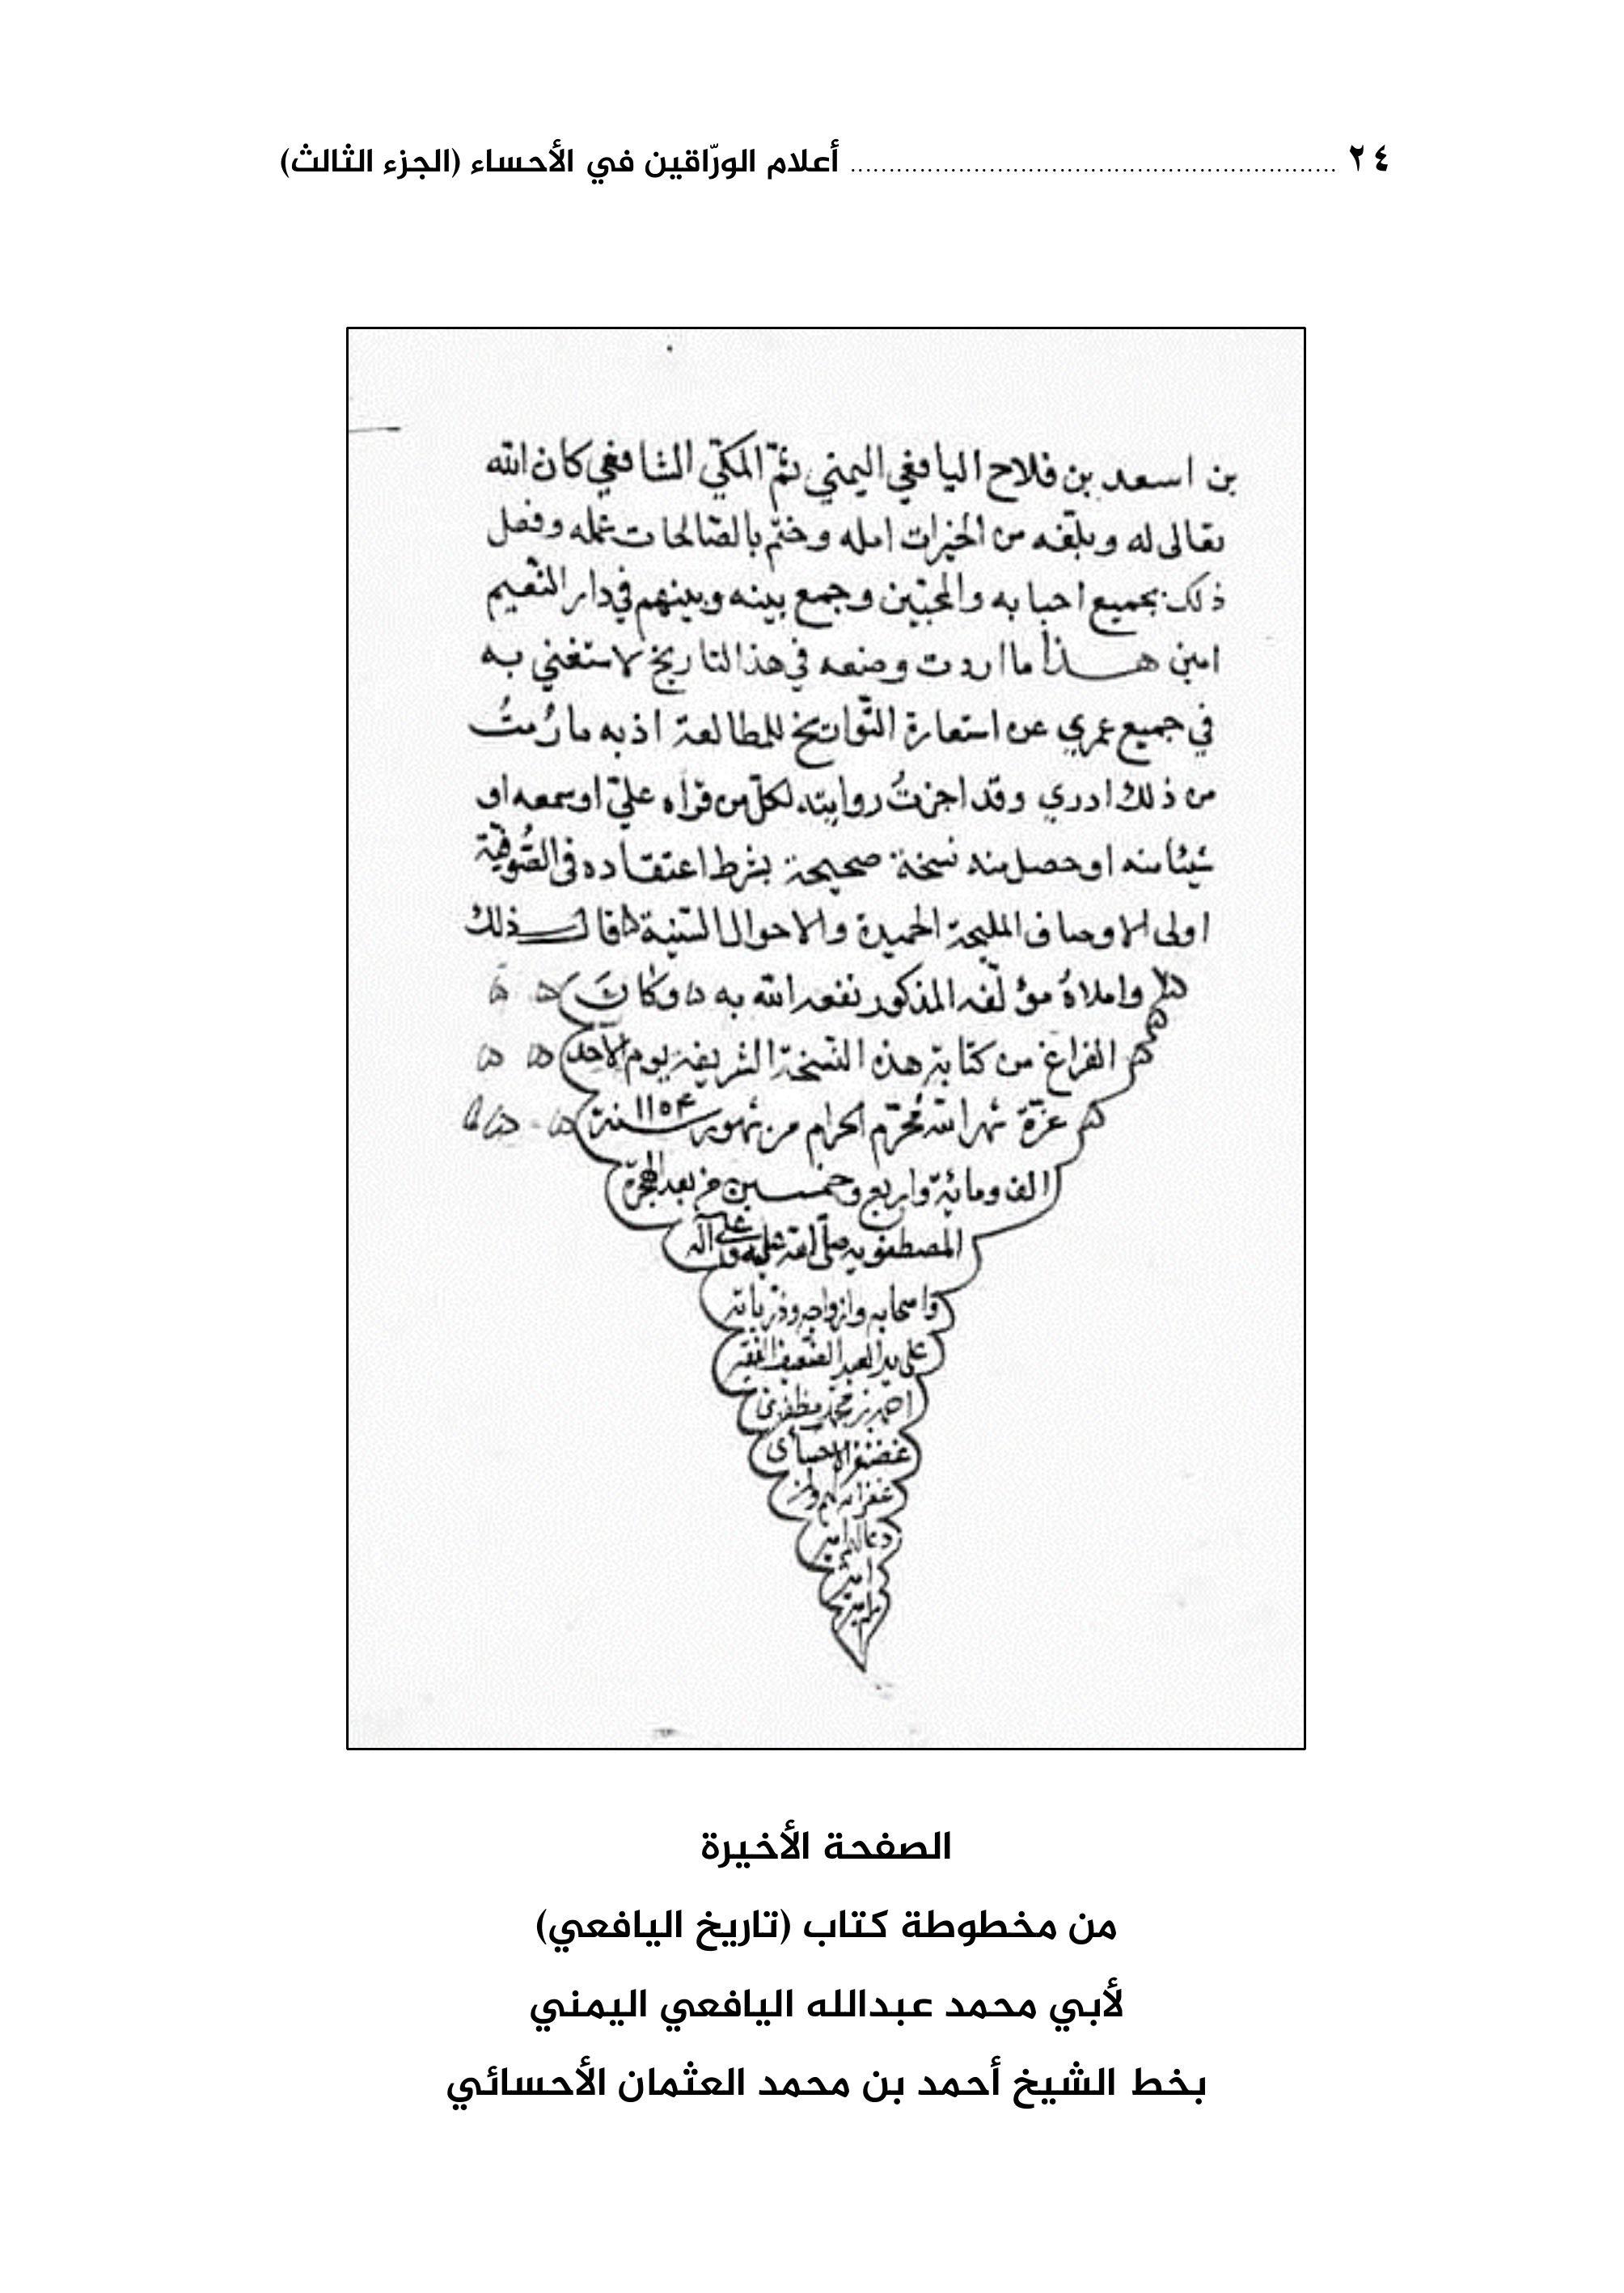 ٢٤ ........................ أعلام الورّاقين في الأحساء (الجزء الثالث)
بن اسعد بن فلاح اليافعي اليمني ثمّ المكّي الشافعي كان الله
تعالى له وبلّغه من الخيرات امله وختم بالصّالحات عمله وفعل
ذلك بجميع احبابه والمحبّين وجمع بينه وبينهم في دار النّعيم
امين هذا ما اردت وضعه في هذا التاريخ لاستغني به
في جميع عمري عن استعارة التّواريخ للمطالعة اذ به ما رُمتُ
من ذلك ادري وقد اجزتُ روايته لكلّ من قرأه عليّ او سمعه او
شيئا منه او حصل منه نسخة صحيحة بشرط اعتقاده في الصُّوفيّة
اولى الاوصاف المليحة الحميدة والاحوال السّنية قال ذلك
واملاهُ مؤلّفه المذكور نفعه الله به وكان
الفراغ من كتابة هذه النّسخة الشريفة يوم الاحد
غرّة شهر الله محرّم الحرام من شهور سنة ١١٥٤
الف ومائة واربع وخمسين من بعد الهجرة
المصطفويه صلّى الله عليه وعلى آله
واصحابه وازواجه وذرياته
على يد العبد الضعيف الفقير
احمد بن محمد مظفر بن
غضنفر الاحسائى
غفر الله لهم ولمن
دعا لهم امين
امين
الصفحة الأخيرة
من مخطوطة كتاب (تاريخ اليافعي)
لأبي محمد عبدالله اليافعي اليمني
بخط الشيخ أحمد بن محمد العثمان الأحسائي